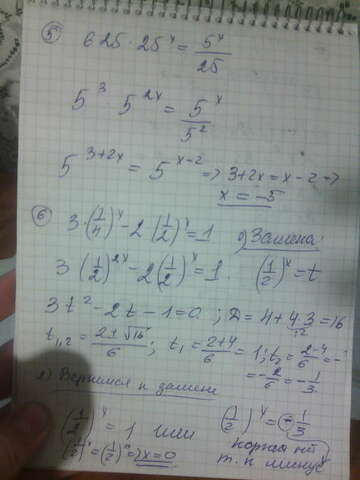 ⑤ 625 · 25^x = 5^x/25
5^3 5^{2x} = 5^x/5^2
5^{3+2x} = 5^{x-2} => 3+2x = x-2 =>
x = -5
⑥ 3·(1/4)^x - 2·(1/2)^x = 1 Замена:
3(1/2)^{2x} - 2(1/2)^x = 1. (1/2)^x = t
3t^2 - 2t - 1 = 0 ; D = 4 + 4·3 = 16
t_{1,2} = 2±√16/6 ; t_1 = 2+4/6 = 1 ; t_2 = 2-4/6 =
= -2/6 = -1/3
2) Вернемся к замене
(1/2)^x = 1 или (1/2)^x = -1/3
(1/2)^x = (1/2)^0 => x = 0 корня нет
т.к минус